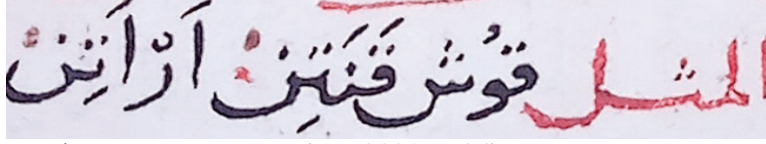 المثل قُوْش قَنَتِنْ اَرْ اَتِنْ